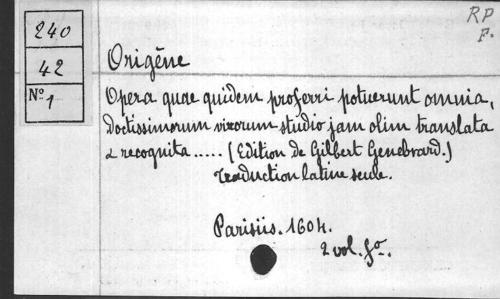 RP
F.
240
42
N° 1
Origène
Opera quae quidem proferri potuerunt omnia,
doctissimorum virorum studio jam olim translata
& recognita ..... (Edition de Gilbert Genebrard.)
Traduction latine seule.
Parisiis. 1604.
2 vol. fo.